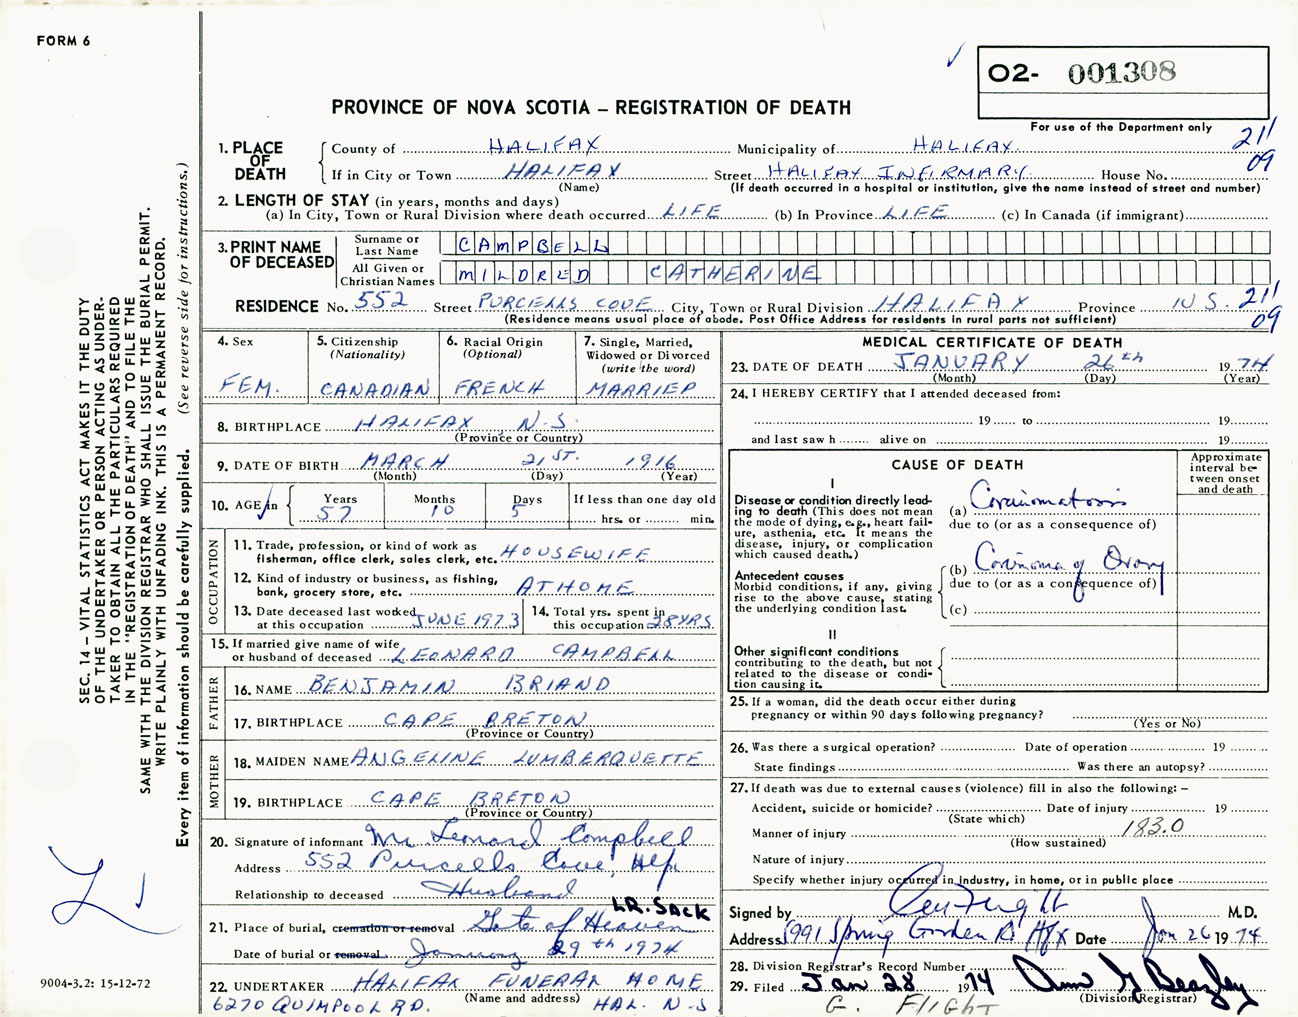 FORM 6
✓
O2- 001308
PROVINCE OF NOVA SCOTIA – REGISTRATION OF DEATH
For use of the Department only
211
09
1. PLACE OF DEATH
County of HALIFAX Municipality of HALIFAX
If in City or Town HALIFAX Street HALIFAX INFIRMARY House No.
(Name) (If death occurred in a hospital or institution, give the name instead of street and number)
2. LENGTH OF STAY (in years, months and days)
(a) In City, Town or Rural Division where death occurred LIFE (b) In Province LIFE (c) In Canada (if immigrant)
3. PRINT NAME OF DECEASED
Surname or Last Name CAMPBELL
All Given or Christian Names MILDRED CATHERINE
RESIDENCE No. 552 Street PURCELLS COVE City, Town or Rural Division HALIFAX Province N.S. 211
09
(Residence means usual place of abode. Post Office Address for residents in rural parts not sufficient)
4. Sex
FEM.
5. Citizenship
(Nationality)
CANADIAN
6. Racial Origin
(Optional)
FRENCH
7. Single, Married,
Widowed or Divorced
(write the word)
MARRIED
8. BIRTHPLACE HALIFAX N.S.
(Province or Country)
9. DATE OF BIRTH MARCH 21ST. 1916
(Month) (Day) (Year)
10. AGE in
Years Months Days If less than one day old
57 10 5 hrs. or min.
OCCUPATION
11. Trade, profession, or kind of work as
fisherman, office clerk, sales clerk, etc. HOUSEWIFE
12. Kind of industry or business, as fishing,
bank, grocery store, etc. AT HOME
13. Date deceased last worked
at this occupation JUNE 1973
14. Total yrs. spent in
this occupation 28YRS
15. If married give name of wife
or husband of deceased LEONARD CAMPBELL
FATHER
16. NAME BENJAMIN BRIAND
17. BIRTHPLACE CAPE BRETON
(Province or Country)
MOTHER
18. MAIDEN NAME ANGELINE LUMBERQUETTE
19. BIRTHPLACE CAPE BRETON
(Province or Country)
20. Signature of informant Mr Leonard Campbell
Address 552 Purcells Cove, Hfx
Relationship to deceased Husband
LR. SACK
21. Place of burial, cremation or removal Gate of Heaven
Date of burial or removal January 29th 1974
22. UNDERTAKER HALIFAX FUNERAL HOME
(Name and address)
6270 QUIMPOOL RD. HAL. N-S
MEDICAL CERTIFICATE OF DEATH
23. DATE OF DEATH JANUARY 26th 1974
(Month) (Day) (Year)
24. I HEREBY CERTIFY that I attended deceased from:
19 to 19
and last saw h alive on 19
CAUSE OF DEATH
Approximate interval between onset and death
I
Disease or condition directly lead-
ing to death (This does not mean
the mode of dying, e.g., heart fail-
ure, asthenia, etc. It means the
disease, injury, or complication
which caused death.)
(a) Carcinomatosis
due to (or as a consequence of)
Antecedent causes
Morbid conditions, if any, giving
rise to the above cause, stating
the underlying condition last.
(b) Carcinoma of Ovary
due to (or as a consequence of)
(c)
II
Other significant conditions
contributing to the death, but not
related to the disease or condi-
tion causing it.
25. If a woman, did the death occur either during
pregnancy or within 90 days following pregnancy?
(Yes or No)
26. Was there a surgical operation? Date of operation 19
State findings Was there an autopsy?
27. If death was due to external causes (violence) fill in also the following: –
Accident, suicide or homicide? Date of injury 19
(State which)
Manner of injury 183.0
(How sustained)
Nature of injury
Specify whether injury occurred in industry, in home, or in public place
Signed by M.D.
Address 5991 Spring Garden Rd Hfx Date Jan 26 1974
28. Division Registrar's Record Number
29. Filed Jan 28 1974 Ann G Beazley
(Division Registrar)
G. FLIGHT
SEC. 14 – VITAL STATISTICS ACT MAKES IT THE DUTY
OF THE UNDERTAKER OR PERSON ACTING AS UNDER-
TAKER TO OBTAIN ALL THE PARTICULARS REQUIRED
IN THE "REGISTRATION OF DEATH" AND TO FILE THE
SAME WITH THE DIVISION REGISTRAR WHO SHALL ISSUE THE BURIAL PERMIT.
WRITE PLAINLY WITH UNFADING INK. THIS IS A PERMANENT RECORD.
Every item of information should be carefully supplied. (See reverse side for instructions.)
9004-3.2: 15-12-72